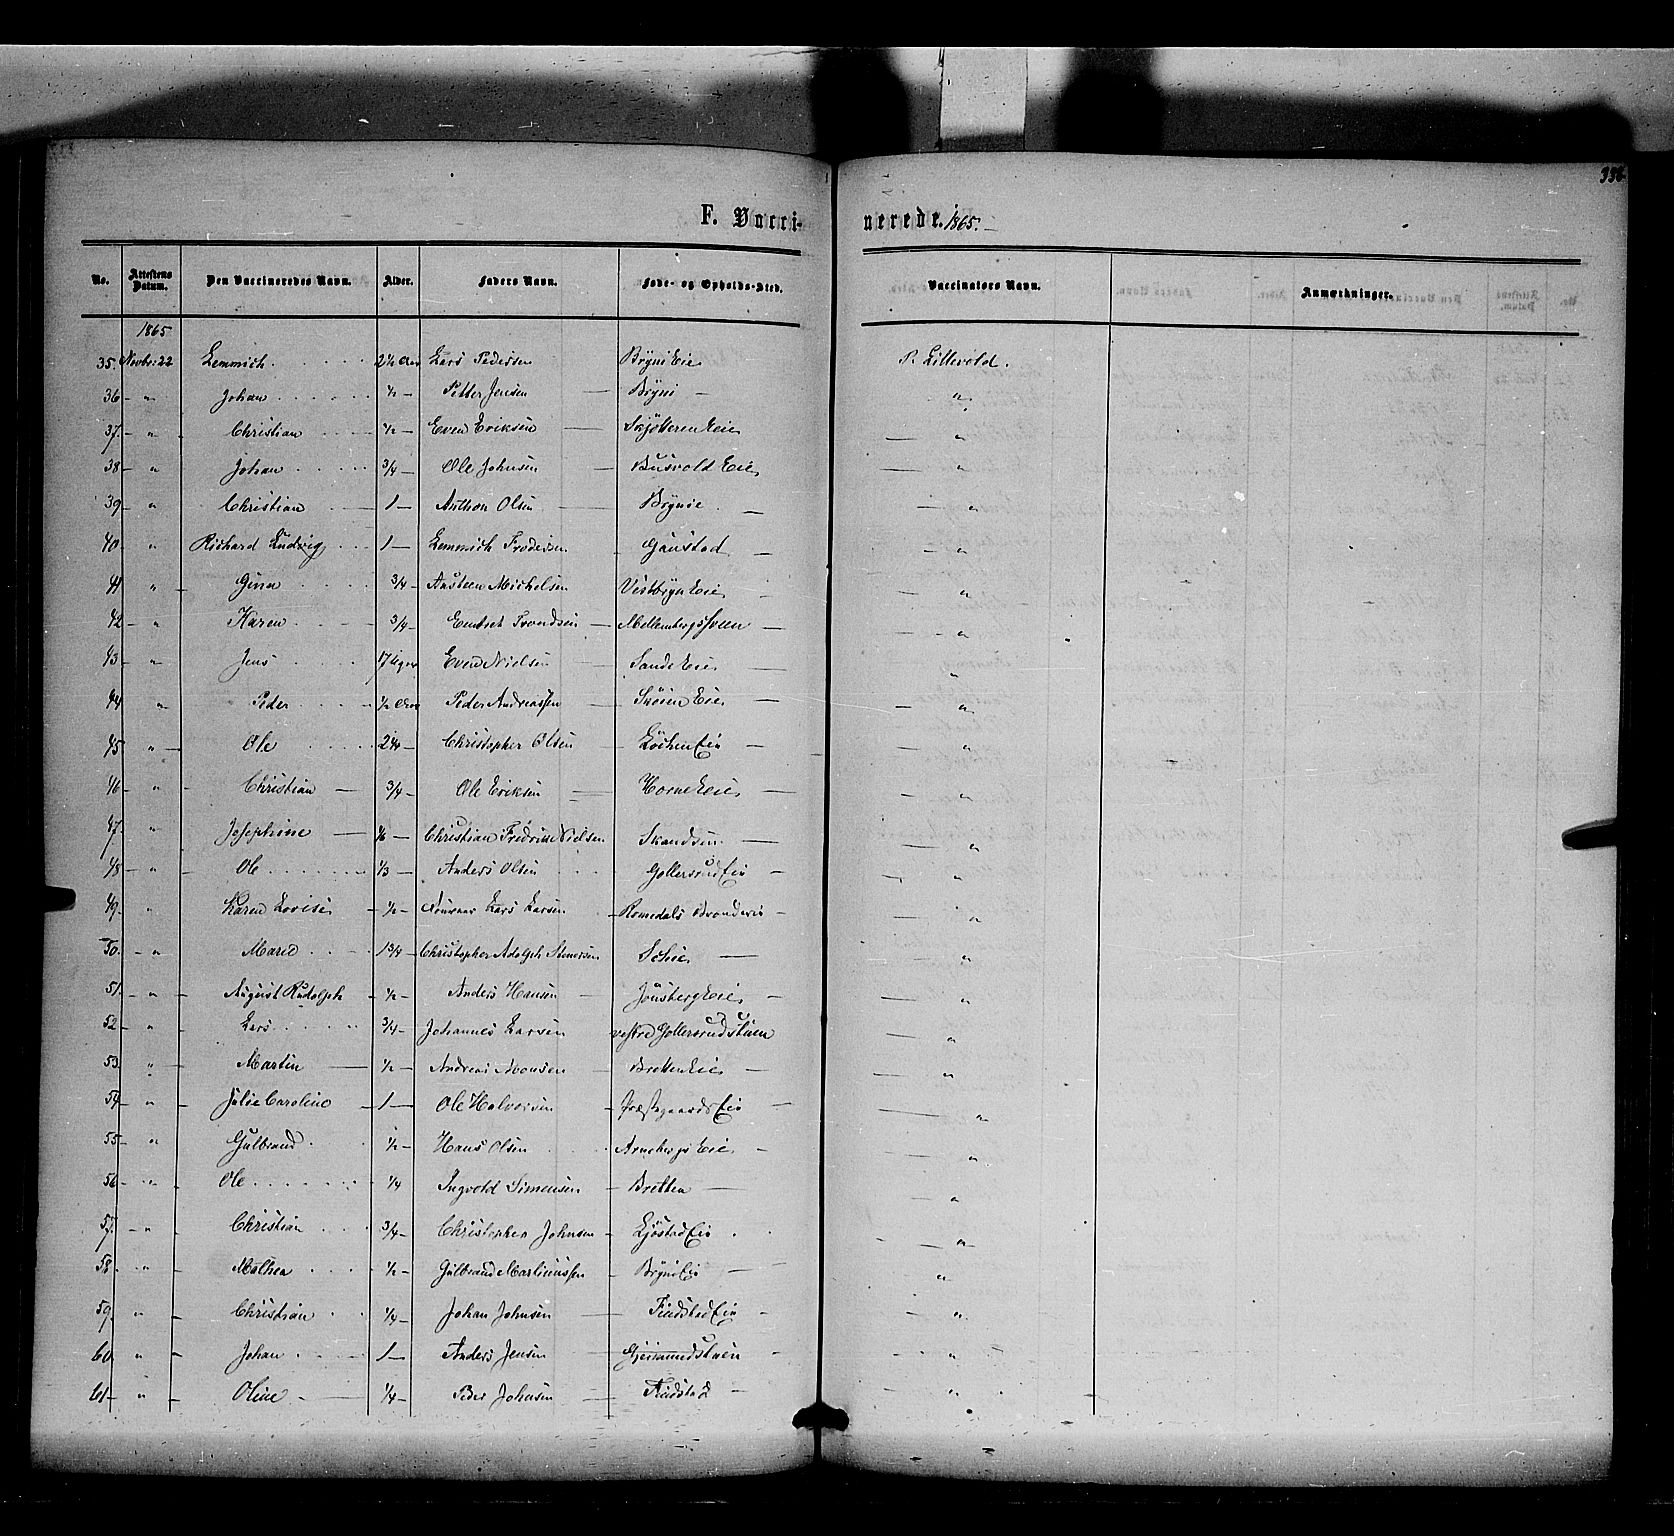 336
F. Vacci- nerede. 1865.
No. Attestens Datum. Den Vaccineredes Navn. Alder. Faders Navn. Føde- og Opholds-Sted. Vaccinatørs Navn. Anmærkninger.
1865
35. Novbr: 22 Lemmich 2½ Aar Lars Pedersen Bryni Eie P. Lillevold.
36 - " Johan ½ - Petter Jensen - Bryni - "
37. - " - Christian ½ - Even Eriksen - Skjötteren Eie - "
38 - " Johan 3/4 - Ole Johnsen - Busvold Eie - "
39 " Christian - 1 - Anthon Olsen - Brynie - - "
40 " Richard Ludvig 1 - Lemmich - Gaustad - - "
41 " - Gina 3/4 - Austeen Michelsen Vestbryn Eie - - "
42 - " Karen 3/4 - Trondsen - Mellembergsveen - - "
43 - " Jens 17 Uger Even Nielsen Sande Eie - "
44 " Peder ½ Aar Peder Andreassen - Sköien Eie - - "
45 " - Ole 2¼ - Christopher Olsen Löchen Eie - - "
46 - " - Christian - 3/4 - Ole Eriksen - Horne Eie - - "
47. - " Josephine - - Christian Fredrik Nielsen Skandsen - - "
48 - " - Ole 1/3 - Anders Olsen Gollersrud Eie - - "
49. " - Karen Lovise - ½ - Lars Larsen - Romedals - - "
50. - " Maren 1 3/4 - Christopher Adolph Simensen - - "
51. - " - August Rudolph - ½ - Anders Hansen - Jönsberg Eie - - "
52 - " - Lars 3/4 - Johannes Larsen vestre Gollersrudstuen - "
53. " - Martin - ½ - Andreas Monsen - Brotten Eie - - "
54 - " - Julie Caroline - 1 - Ole Halvorsen - Præstgaards Eie - - "
55 - " Gulbrand ½ - Hans Olsen Arnebergs Eie - - "
56 - " - Ole 1/4 Ingvold Simensen - Bretten - - "
57. - " Christian 3/4 - Christopher Johnsen - Ljöstad Eie - "
58. " - Mathea ½ - Gulbrand Martinussen - Bryni Eie - "
59. " - Christian 1/4 - Johan Johnsen - Findstad Eie - - "
60 " - Johan 1 - Anders Jensen - Gjeirmundstuen - - "
61 - " - Oline - 1/4 - Peder Johnsen - Findstad - - "